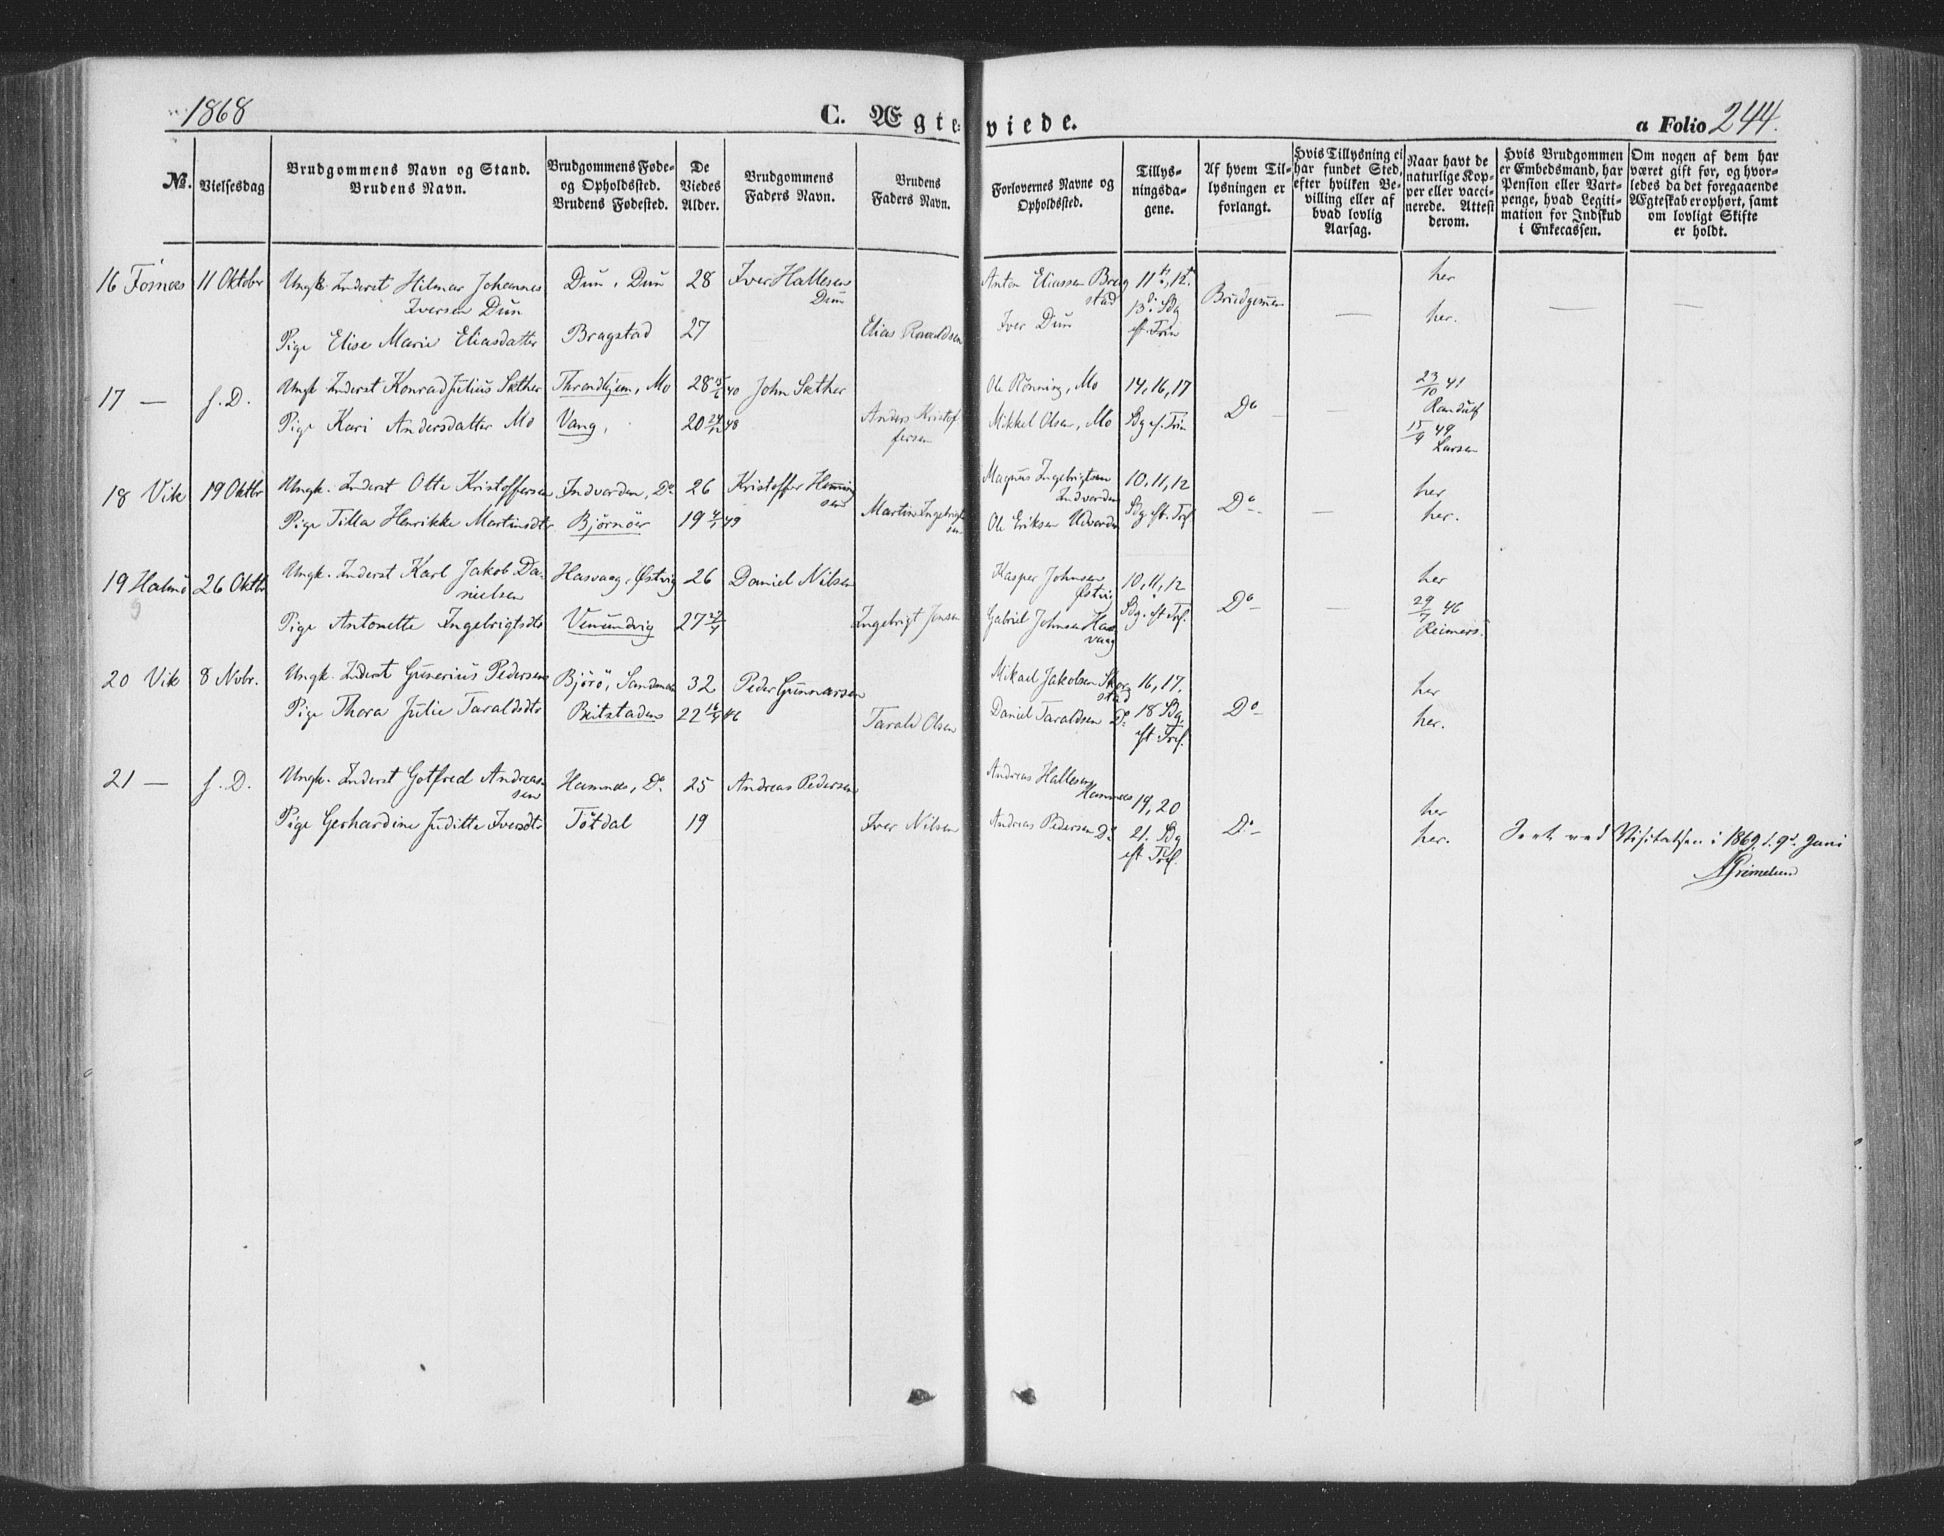 1868
C. Ægteviede.
a Folio 244.
No.
Vielsesdag
Brudgommens Navn og Stand.
Brudens Navn.
Brudgommens Føde-
og Opholdssted.
Brudens Fødested.
De
Viedes
Alder.
Brudgommens
Faders Navn.
Brudens
Faders Navn.
Forlovernes Navne og
Opholdssted.
Tillys-
ningsda-
gene.
Af hvem Til-
lysningen er
forlangt.
Hvis Tillysning ei
har fundet Sted,
efter hvilken Be-
villing eller af
hvad lovlig
Aarsag.
Naar havt de
naturlige Kop-
per eller vacci-
nerede. Attest
derom.
Hvis Brudgommen
er Embedsmand, har
Pension eller Vart-
penge, hvad Legiti-
mation for Indskud
i Enkecassen.
Om nogen af dem har
været gift før, og hvor-
ledes da det foregaaende
Ægteskab er ophørt, samt
om lovligt Skifte
er holdt.
16 Fosnæs 11 Oktober Ungk. Inderst Hilmar Johannes Dun, Dun 28 Iver Hallesen Anton Eliassen Brag 11te, 12te her
Iversen Dun Dun stad 13de Sdg Brudgommen — her. — —
Pige Elise Marie Eliasdatter Bragstad 27 Elias Roaldsen Iver Dun ef. Trin
17 — s. D. Ungk. Inderst Konrad Julius Sæther Throndhjem, Mo 28 15/6 40 John Sæther Ole Rønning, Mo 14, 16, 17 23/10 41
Pige Kari Andersdatter Mo Vang, 20 24/12 48 Anders Kristof
fersen Mikkel Olsen, Mo Sdg. ef. Trin Do — 15/9 49
Larsen
18 Vik 19 Oktbr Ungk. Inderst Otte Kristoffersen Indvorden, Do 26 Kristoffer Henning
sen Magnus Ingebrigtsen
Indvorden 10, 11, 12 her
Pige Tilla Henrikke Martinsdtr. Bjørnør 19 4/1 49 Martin Ingebrigt
sen Ole Eriksen Udvorden Sdg. ef. Tref. Do — her.
19 26 Oktbr Ungk. Inderst Karl Jakob Da-
nielsen Hasvaag, Østvig 26 Daniel Nilsen Kasper Johnsen
Østvig 10, 11, 12 her
Pige Antonette Ingebrigtsdtr Vemundvig 27 Ingebrigt Jensen Gabriel Johnsen Has
vaag Sdg. ef. Tref. Do — 29/7 46
Reimers.
20 Vik 8 Novbr. Ungk. Inderst Gunerius Pedersen Bjørø, 32 Peder Gunnarsen Mikael Jakobsen 16, 17. her
Pige Thora Julie Taraldsdtr Beitstaden 22 46 Tarald Olsen Daniel Taraldsen Do 18 Sdg.
eft. Tref. Do her.
21 — s. D. Ungk. Inderst Gotfred Andreas-
sen Hamnes, Do 25 Andreas Pedersen Andreas Hallesen
Hamnes 19, 20 her
Pige Gerhardine Juditte Iversdtr Tøtdal 19 Iver Nilsen Andreas Pedersen Do 21. Sdg
eft Tref. Do her. Seet ved Visitatsen i 1869. d. 9de Juni
Grimelund